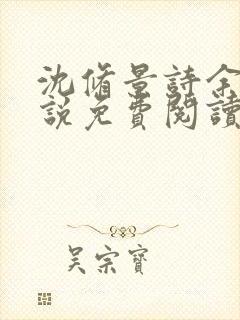 沈脩景詩余
說免費閱讀
吴宗寶